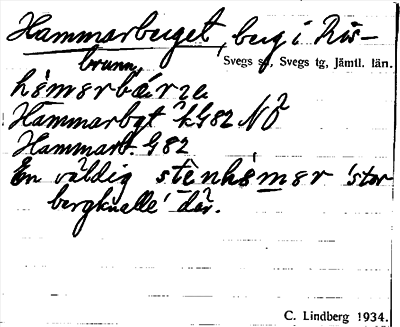 Hammarberget, berg i Ris-
brunn, Svegs sn, Svegs tg, Jämtl. län.
hamerbárze
Hammarbgt ªk G82 NÖ
Hammarb. G82
En väldig stenhamer 'stor
bergknalle' där.
C. Lindberg 1934.